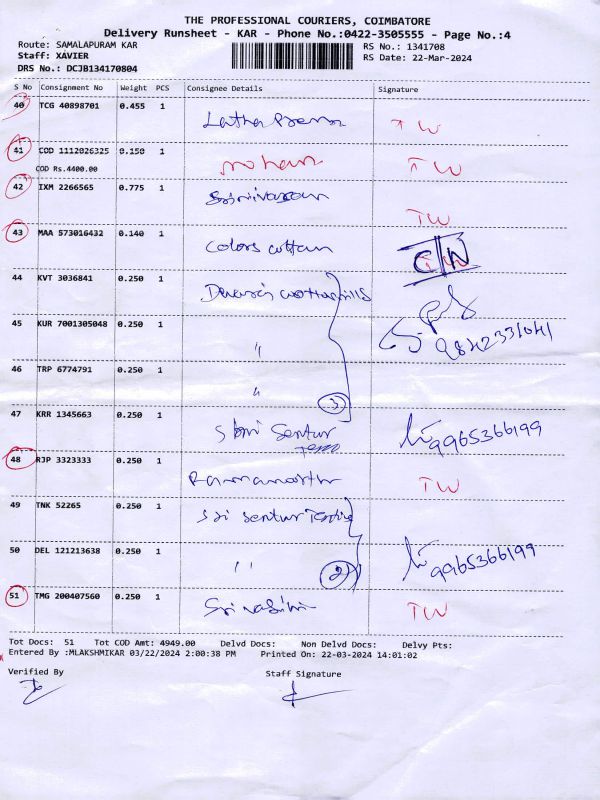 THE PROFESSIONAL COURIERS, COIMBATORE
Delivery Runsheet - KAR - Phone No.:0422-3505555 - Page No.:4
Route: SAMALAPURAM KAR
RS No.: 1341708
Staff: XAVIER
RS Date: 22-Mar-2024
DRS No.: DCJB134170804
S No Consignment No Weight PCS Consignee Details Signature
40 TCG 40898701 0.455 1
Latha TW
41 COD 1112026325 0.150 1
COD Rs.4400.00 mohan TW
42 IXM 2266565 0.775 1
Srinivasan TW
43 MAA 573016432 0.140 1
Colors cottan C/N
44 KVT 3036841 0.250 1
45 KUR 7001305048 0.250 1
" 9842331041
46 TRP 6774791 0.250 1
" 3
47 KRR 1345663 0.250 1
Sri Sentur 9965366199
48 RJP 3323333 0.250 1
Ramamoorthi TW
49 TNK 52265 0.250 1
Sri Sentur
50 DEL 121213638 0.250 1
" 2 9965366199
51 TMG 200407560 0.250 1
TW
Tot Docs: 51 Tot COD Amt: 4949.00 Delvd Docs: Non Delvd Docs: Delvy Pts:
Entered By :MLAKSHMIKAR 03/22/2024 2:00:38 PM Printed On: 22-03-2024 14:01:02
Verified By Staff Signature